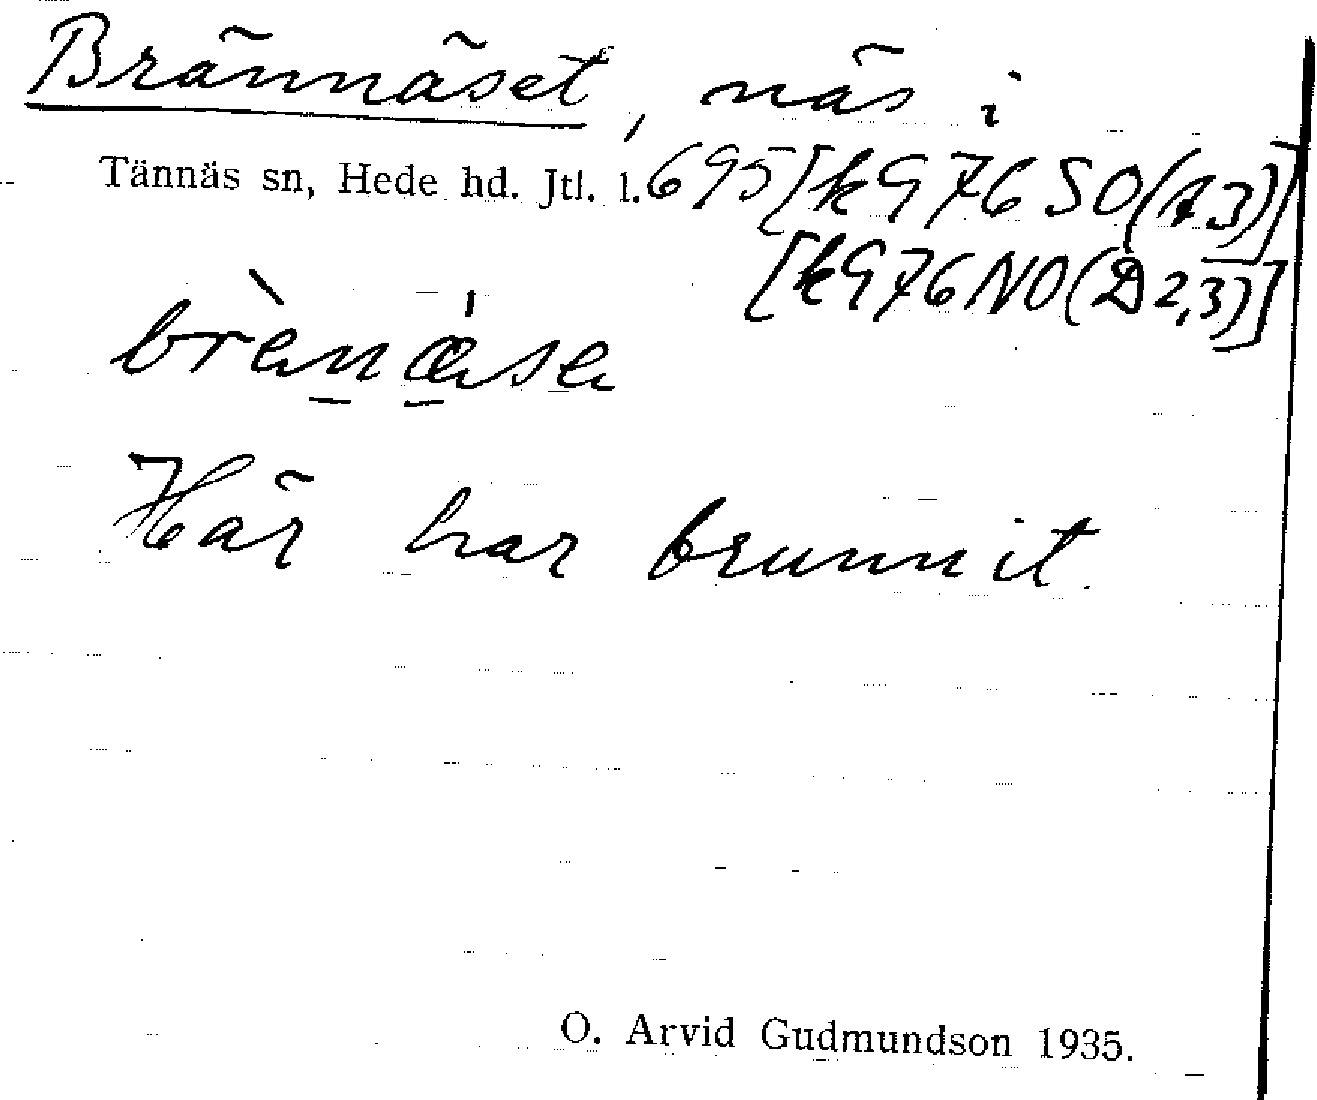 Brännäset, näs i
Tännäs sn, Hede hd. Jtl. l. 695 [k976SO(A3)]
[k976NO(D2,3)]
brènǽse
Här har brunnit.
O. Arvid Gudmundson 1935.